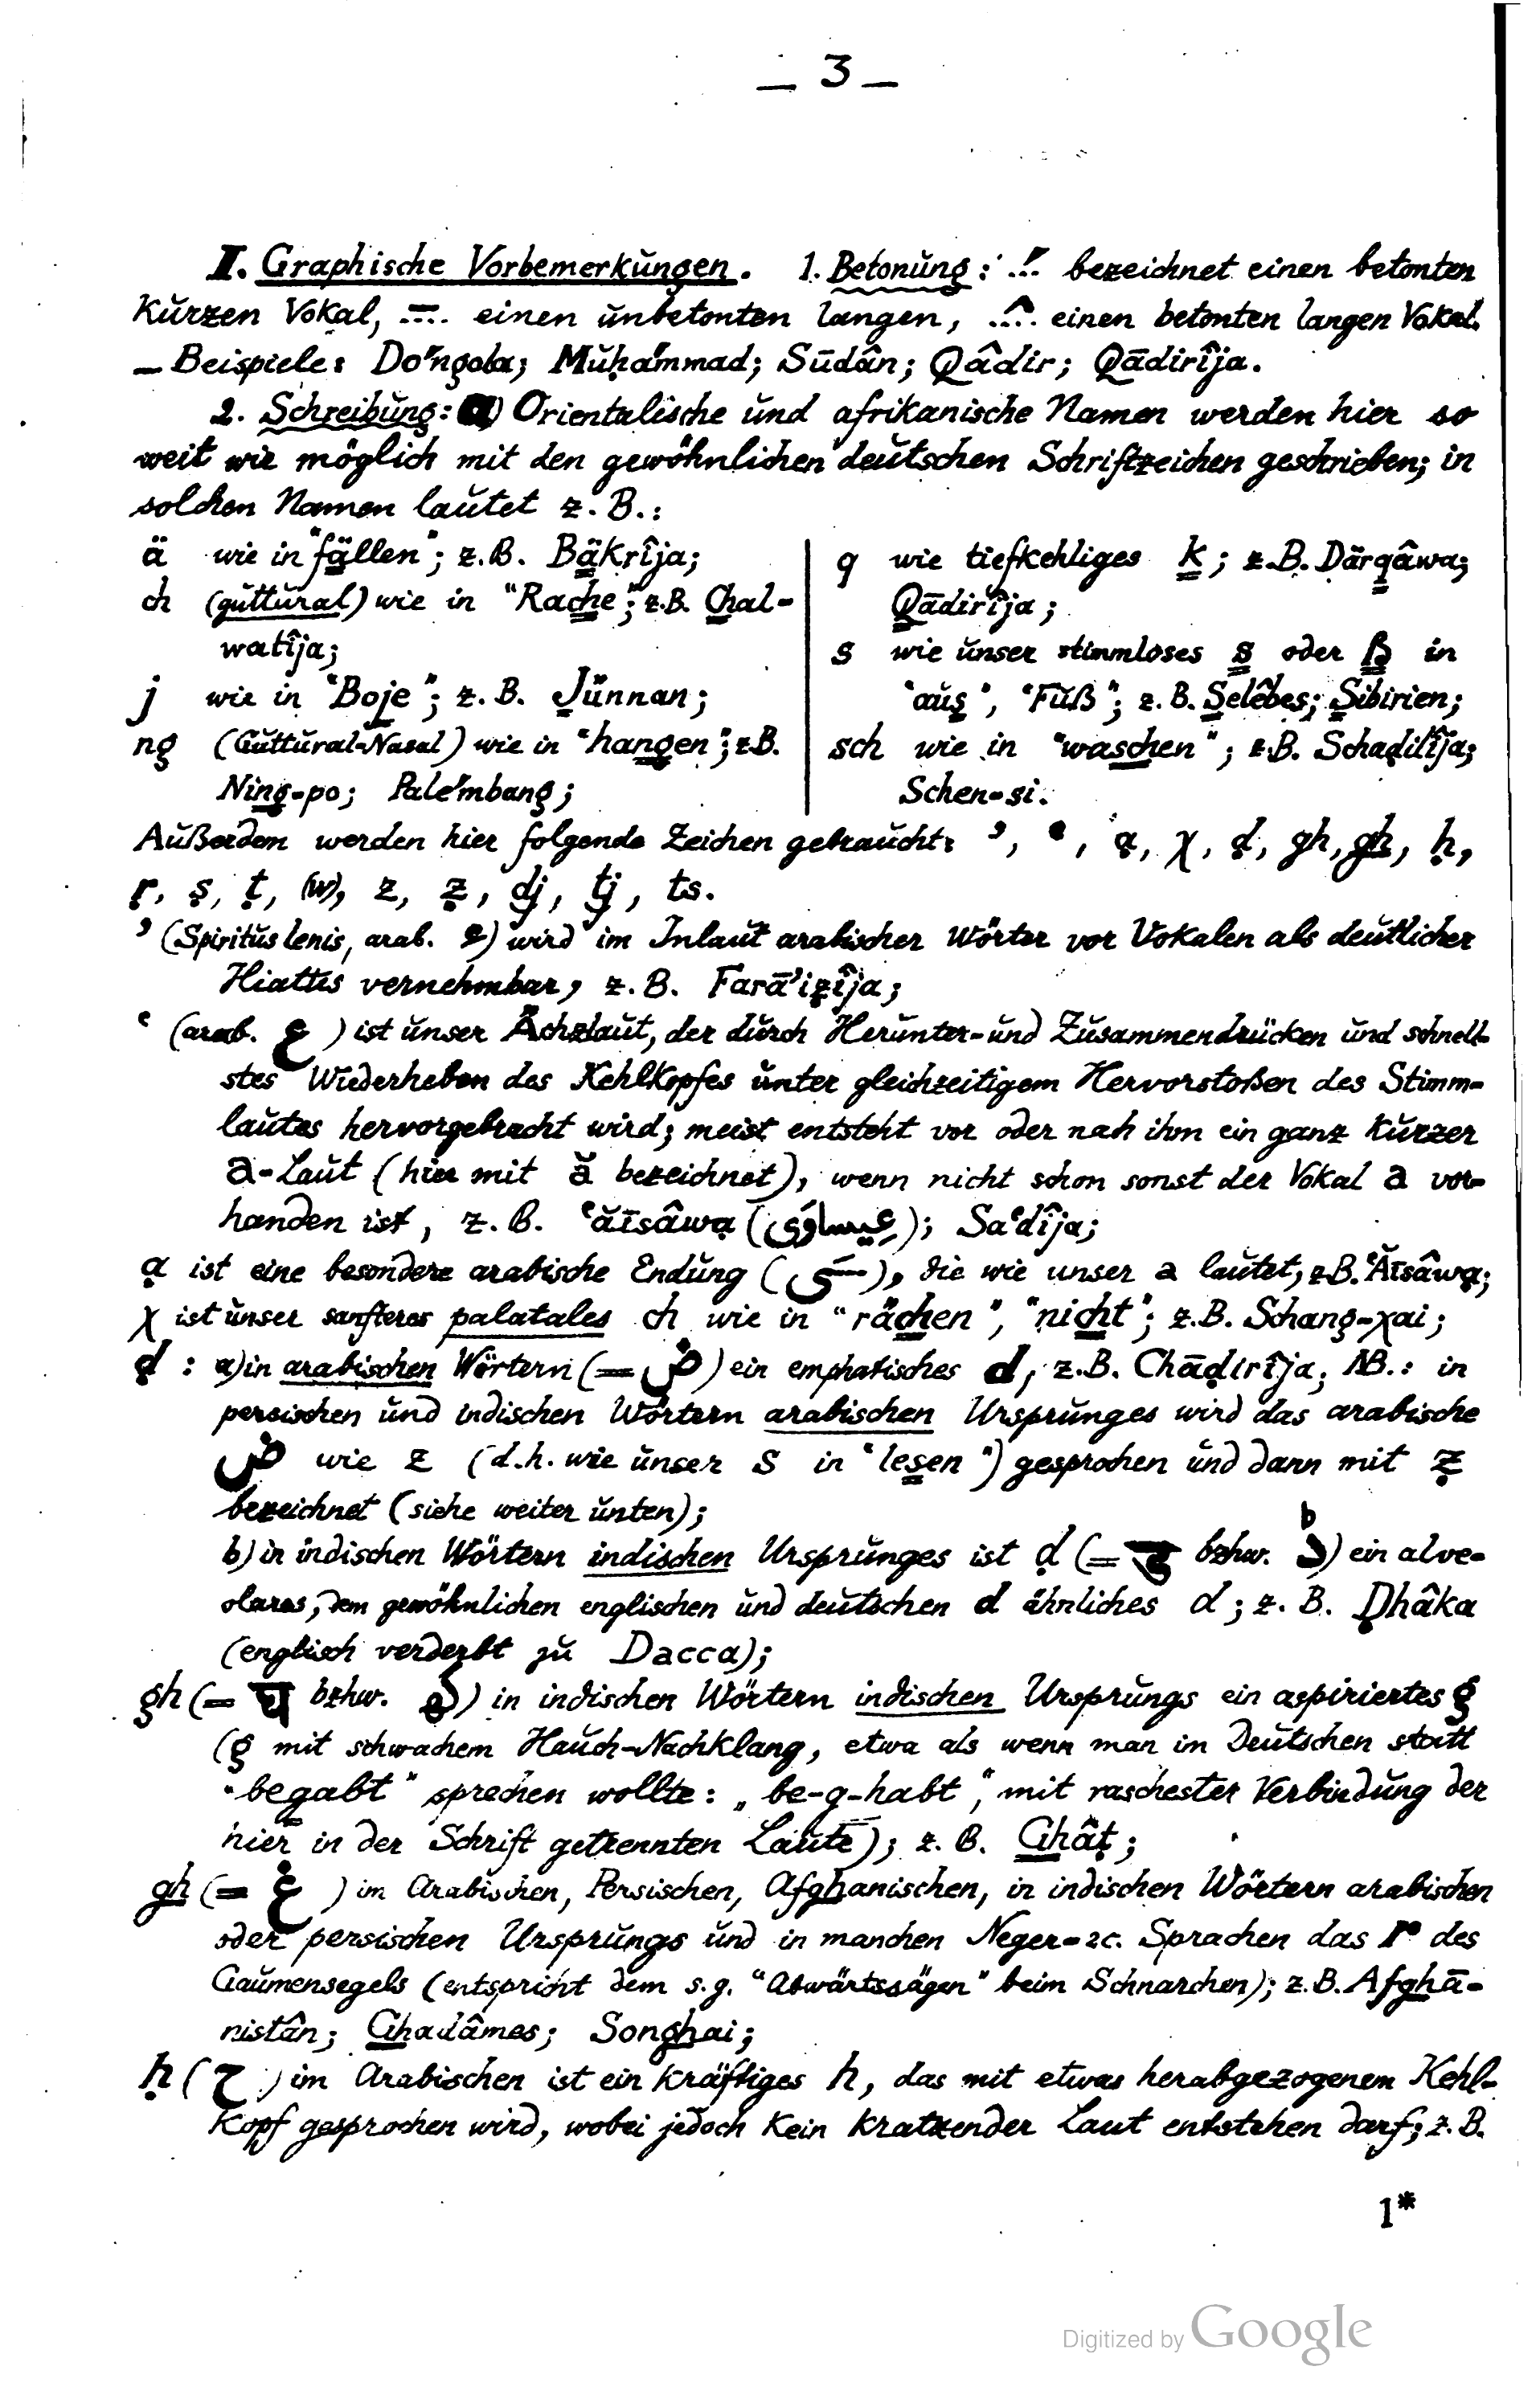 — 3 —
II. Graphische Vorbemerkungen. 1. Betonung: ..́.. bezeichnet einen betonten
kurzen Vokal, ..̄.. einen unbetonten langen, ..̂.. einen betonten langen Vokal.
— Beispiele: Dóngola; Muḥámmad; Sūdân; Qâdir; Qādirîja.
2. Schreibung: a) Orientalische und afrikanische Namen werden hier so
weit wie möglich mit den gewöhnlichen deutschen Schriftzeichen geschrieben; in
solchen Namen lautet z. B.:
ä wie in "fällen"; z.B. Bäkrîja;
ch (guttural) wie in "Rache"; z.B. Chal-
watîja;
j wie in "Boje"; z. B. Jünnan;
ng (Guttural-Nasal) wie in "hangen"; z.B.
Ning-po; Palémbang;
q wie tiefkehliges k; z.B. Därqâwa;
Qādirîja;
s wie unser stimmloses s oder ß in
"aus", "Fuß"; z. B. Selêbes; Sibirien;
sch wie in "waschen"; z.B. Schaḍilîja;
Schen-si.
Außerdem werden hier folgende Zeichen gebraucht: ʾ, ʿ, ạ, χ, ḍ, gh, g͟h, ḥ,
ṛ, ṣ, ṭ, (w), z, ẓ, dj, tj, ts.
ʾ (Spiritus lenis, arab. ء) wird im Inlaut arabischer Wörter vor Vokalen als deutlicher
Hiatus vernehmbar, z. B. Farāʾiẓîja;
ʿ (arab. ع) ist unser Ächzlaut, der durch Herunter- und Zusammendrücken und schnell-
stes Wiederheben des Kehlkopfes unter gleichzeitigem Hervorstoßen des Stimm-
lautes hervorgebracht wird; meist entsteht vor oder nah ihm ein ganz kurzer
a-Laut (hier mit ă bezeichnet), wenn nicht schon sonst der Vokal a vor-
handen ist, z. B. ʿăīsâwạ (عِيساوَى); Saʿdîja;
ạ ist eine besondere arabische Endung (ـَى), die wie unser a lautet, z.B. ʿĂīsâwạ;
χ ist unser sanfteres palatales ch wie in "rächen", "nicht"; z.B. Schang-χai;
ḍ : a) in arabischen Wörtern (= ض) ein emphatisches d, z.B. Chāḍirîja; NB.: in
persischen und indischen Wörtern arabischen Ursprunges wird das arabische
ض wie z (d.h. wie unser s in "lesen") gesprochen und dann mit ẓ
bezeichnet (siehe weiter unten);
b) in indischen Wörtern indischen Ursprunges ist ḍ (= ड bzhw. ڈ) ein alve-
olares, dem gewöhnlichen englischen und deutschen d ähnliches d; z. B. Ḍhâka
(englisch verderbt zu Dacca);
gh (= घ bzhw. گھ) in indischen Wörtern indischen Ursprungs ein aspiriertes g
(g mit schwachem Hauch-Nachklang, etwa als wenn man im Deutschen statt
"begabt" sprechen wollte: „be-g-habt", mit raschester Verbindung der
hier in der Schrift getrennten Laute); z. B. Ghâṭ;
g͟h (= غ) im Arabischen, Persischen, Afghanischen, in indischen Wörtern arabischen
oder persischen Ursprungs und in manchen Neger- 2c. Sprachen das r des
Gaumensegels (entspricht dem s.g. "Abwärtssägen" beim Schnarchen); z.B. Afg͟hā-
nistân; G͟hadâmes; Song͟hai;
ḥ (ح) im Arabischen ist ein kräftiges h, das mit etwas herabgezogenem Kehl-
kopf gesprochen wird, wobei jedoch kein kratzender Laut entstehen darf; z. B.
1*
Digitized by Google